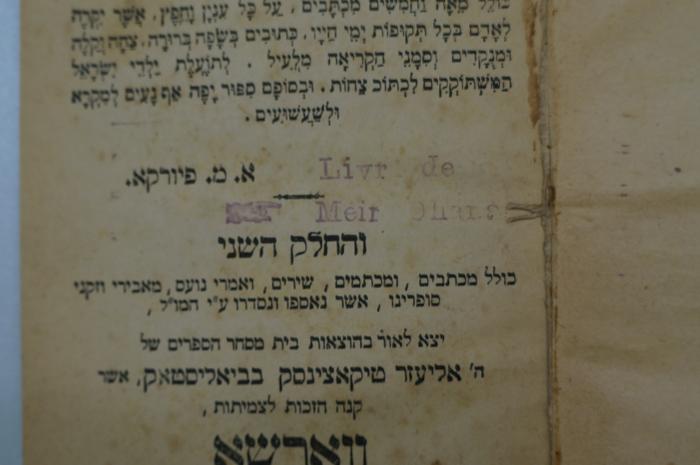 כולל מאה וחמשים מכתבים, על כל ענין וחפץ, אשר יקרה
לאדם בכל תקופות ימי חייו, כתובים בשפה ברורה, צחה וקלה
ומנקדים וסמני הקריאה מלעיל. לתועלת ילדי ישראל
המשתוקקים לכתוב צחות. ובסופם ספור יפה אף נעים למקרא
ולשעשועים.
א. מ. פיורקא.
Livr de
Meir Ohana
והחלק השני
כולל מכתבים, ומכתמים, שירים, ואמרי נועם, מאבירי וזקני
סופרינו, אשר נאספו ונסדרו ע״י המו״ל,
יצא לאור בהוצאות בית מסחר הספרים של
ה' אליעזר טיקאצינסק בביאליסטאק, אשר
קנה הזכות לצמיתות,
ווארשא